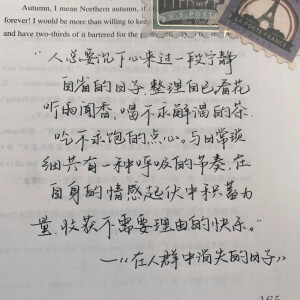 Autumn, I mean Northern autumn, if
forever! I would be more than willing to
and have two-thirds of it bartered for the
“人总要沉下心来过一段宁静
自省的日子,整理自己,看花
听雨闻香,喝不求解渴的茶,
吃不求饱的点心。与日常琐
细共有一种呼吸的节奏,在
自身的情感起伏中积蓄力
量,收获不需要理由的快乐。”
—《在人群中消失的日子》
165